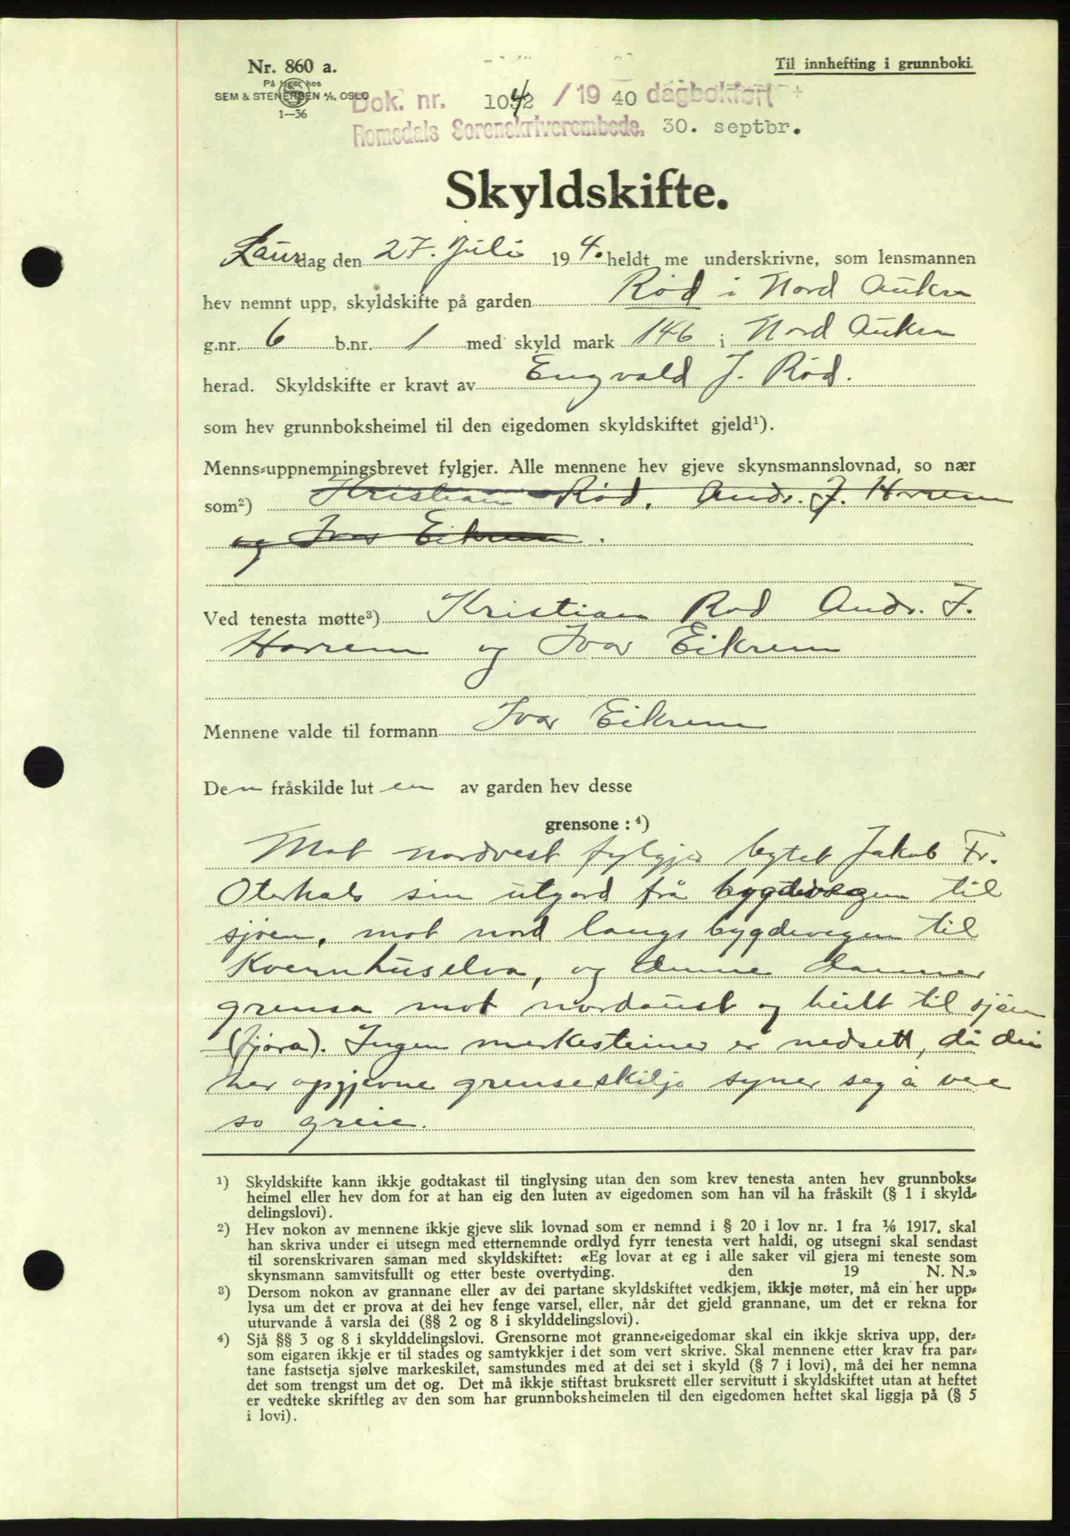 Nr. 860 a.
Til innhefting i grunnboki.
På lager hos
SEM & STENERSEN A/S, OSLO
1—36
Dok. nr. 1042 / 19 40 dagbokført
Romsdals Sorenskriverembede. 30. septbr.
Skyldskifte.
Laurdag den 27. Juli 194 0. heldt me underskrivne, som lensmannen
hev nemnt upp, skyldskifte på garden Rød i Nord Aukra
g.nr. 6 b.nr. 1 med skyld mark 146 i Nord Aukra
herad. Skyldskifte er kravt av Engvald J. Rød.
som hev grunnboksheimel til den eigedomen skyldskiftet gjeld¹).
Menns-uppnemningsbrevet fylgjer. Alle mennene hev gjeve skynsmannslovnad, so nær
som²) Kristian Rød, Andr. J. Horrem
og Ivar Eikrem.
Ved tenesta møtte³) Kristian Rød Andr. J.
Horrem og Ivar Eikrem
Mennene valde til formann Ivar Eikrem
Den fråskilde luten av garden hev desse
grensone : ⁴)
Mot nordvest fylgja bytet Jakob Fr.
Oterhals sin utgard frå bygdevegen til
sjøen, mot nord langs bygdevegen til
Kvernhuselva, og denne danner
grensa mot nordaust og heilt til sjøen
(fjøra). Ingen merkesteiner er nedsett, då dei
her opgjevne grenseskilje syner seg å vere
so greie.
¹) Skyldskifte kann ikkje godtakast til tinglysing utan den som krev tenesta anten hev grunnboks-
heimel eller hev dom for at han eig den luten av eigedomen som han vil ha fråskilt (§ 1 i skyld-
delingslovi).
²) Hev nokon av mennene ikkje gjeve slik lovnad som er nemnd i § 20 i lov nr. 1 fra 1/6 1917, skal
han skriva under ei utsegn med etternemnde ordlyd fyrr tenesta vert haldi, og utsegni skal sendast
til sorenskrivaren saman med skyldskiftet: «Eg lovar at eg i alle saker vil gjera mi teneste som
skynsmann samvitsfullt og etter beste overtyding. den 19 N. N.»
³) Dersom nokon av grannane eller av dei partane skyldskiftet vedkjem, ikkje møter, må ein her upp-
lysa um det er prova at dei hev fenge varsel, eller, når det gjeld grannane, um det er rekna for
uturvande å varsla dei (§§ 2 og 8 i skylddelingslovi).
⁴) Sjå §§ 3 og 8 i skylddelingslovi. Grensorne mot granne-eigedomar skal ein ikkje skriva upp, der-
som eigaren ikkje er til stades og samtykkjer i det som vert skrive. Skal mennene etter krav fra par-
tane fastsetja sjølve markeskilet, samstundes med at dei set i skyld (§ 7 i lovi), må dei her nemna
det som trengst um det og. Det må ikkje stiftast bruksrett eller servitutt i skyldskiftet utan at heftet
er vedteke skriftleg av den som har grunnboksheimelen til den eigedomen heftet skal liggja på (§ 5
i lovi).